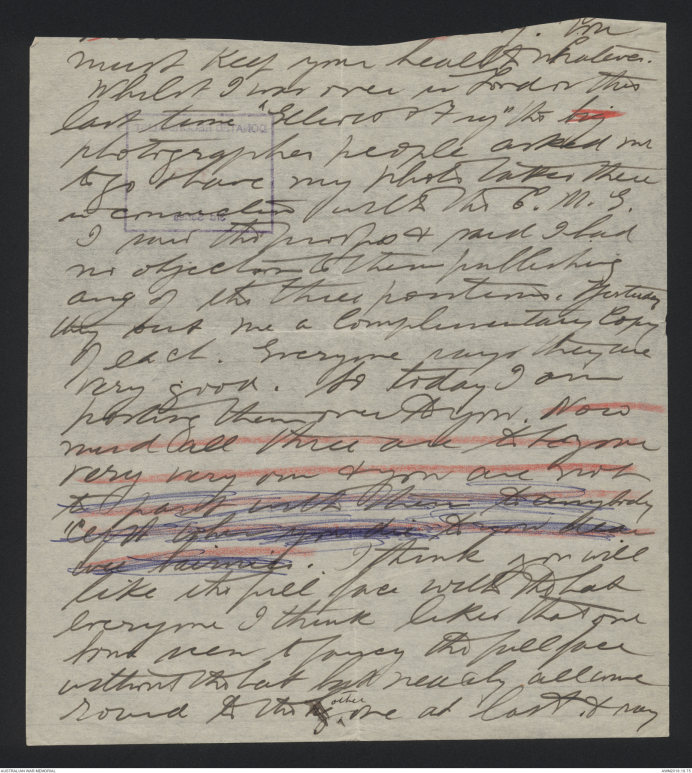 You
must keep your health whatever.
Whilst I was over in London this
last time "Elliott & Fry" the big
photographer people asked me
to go & have my photo taken there
in connection with the C. M. G.
I saw the proofs & said I had
no objection to them publishing
any of the three positions. Yesterday
they sent me a complimentary Copy
of each. Everyone says they are
very good. So today I am
posting them over to you. Now
mind all three are to be your
very very own & you are not
to part with them to anybody
I think you will
like the full face with the hat
everyone I think likes that one
some seem to fancy the full face
without the hat but nearly all come
round to the other one at last & say
AUSTRALIAN WAR MEMORIAL